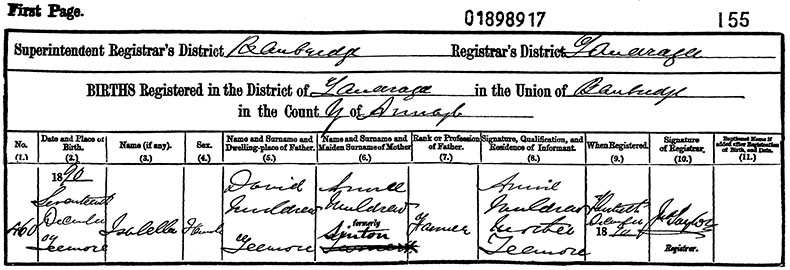 First Page.
01898917
155
Superintendent Registrar's District Banbridge Registrar's District Tanderagee
BIRTHS Registered in the District of Tanderagee in the Union of Banbridge
in the County of Armagh
No. (1.)
Date and Place of Birth. (2.)
Name (if any). (3.)
Sex. (4.)
Name and Surname and Dwelling-place of Father. (5.)
Name and Surname and Maiden Surname of Mother (6.)
Rank or Profession of Father. (7.)
Signature, Qualification, and Residence of Informant. (8.)
When Registered. (9.)
Signature of Registrar. (10.)
Baptismal Name if added after Registration of Birth, and Date. (11.)
460
1890
Seventeenth
December
Teemore
Isabella
Female
David
Muldrew
Teemore
Annie
Muldrew
formerly
Synton
Farmer
Annie
Muldrew
Mother
Teemore
Thirtieth
December
1890
Taylor
Registrar.